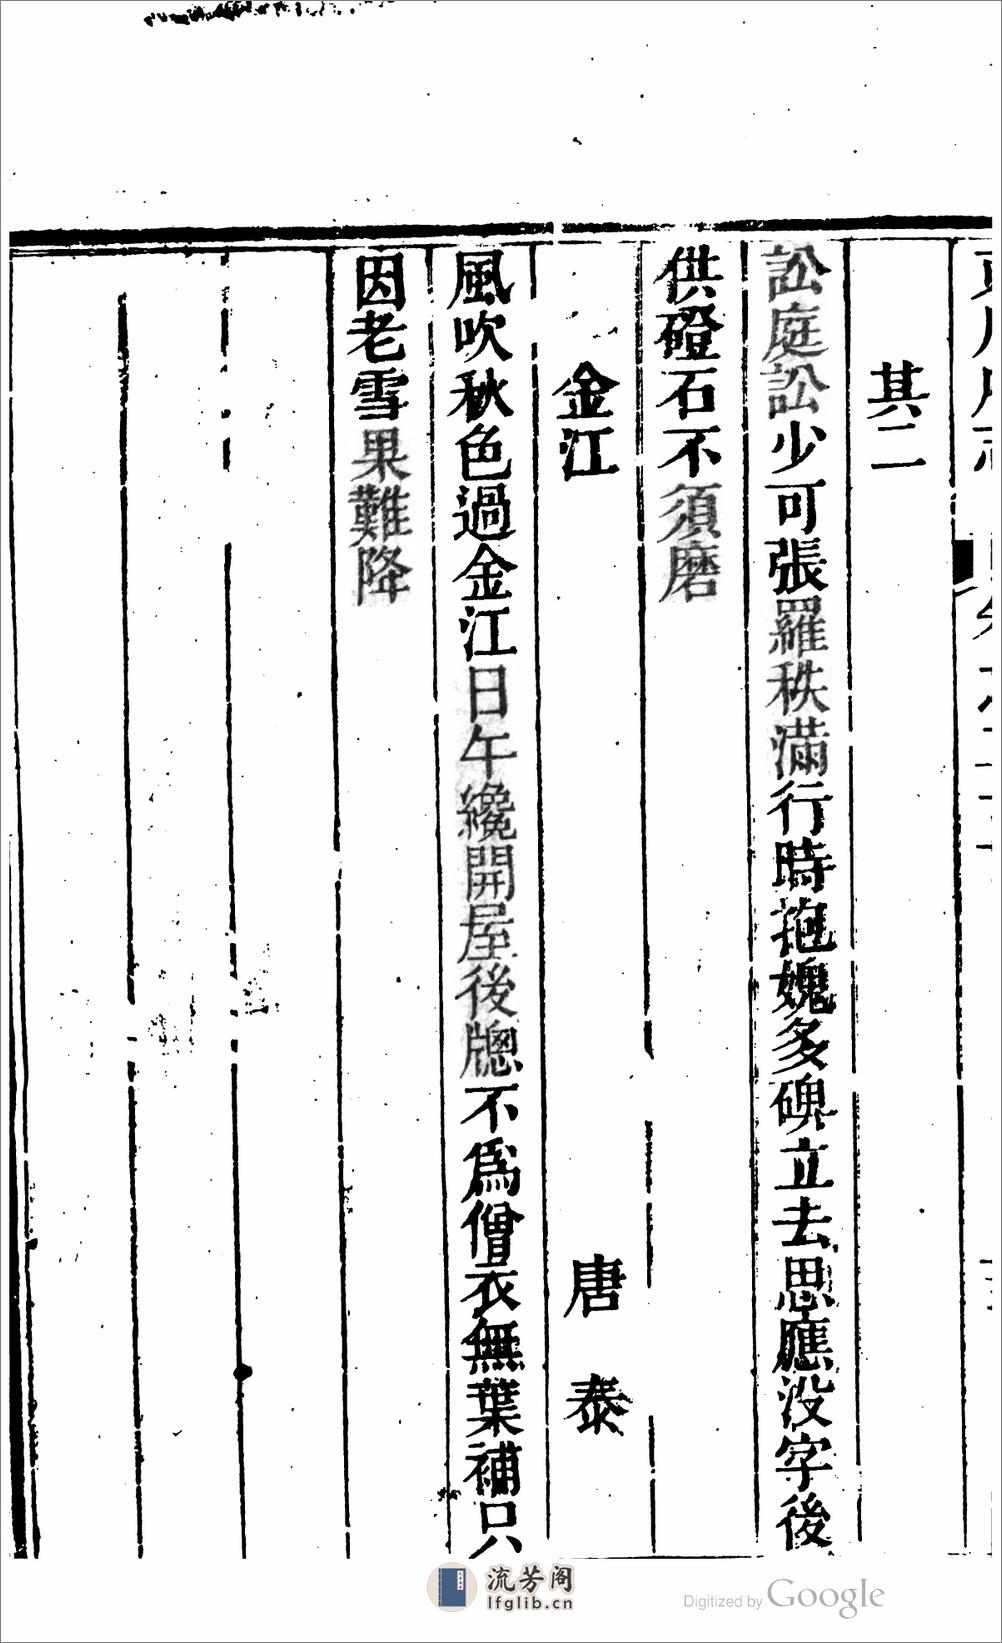 其二
訟庭訟少可張羅秩滿行時抱媿多碑立去思應没字後
供磴石不須磨
金江 唐泰
風吹秋色過金江日午纔開屋後牕不爲僧衣無葉補只
因老雪果難降
流芳阁
lfglib.cn
Digitized by Google